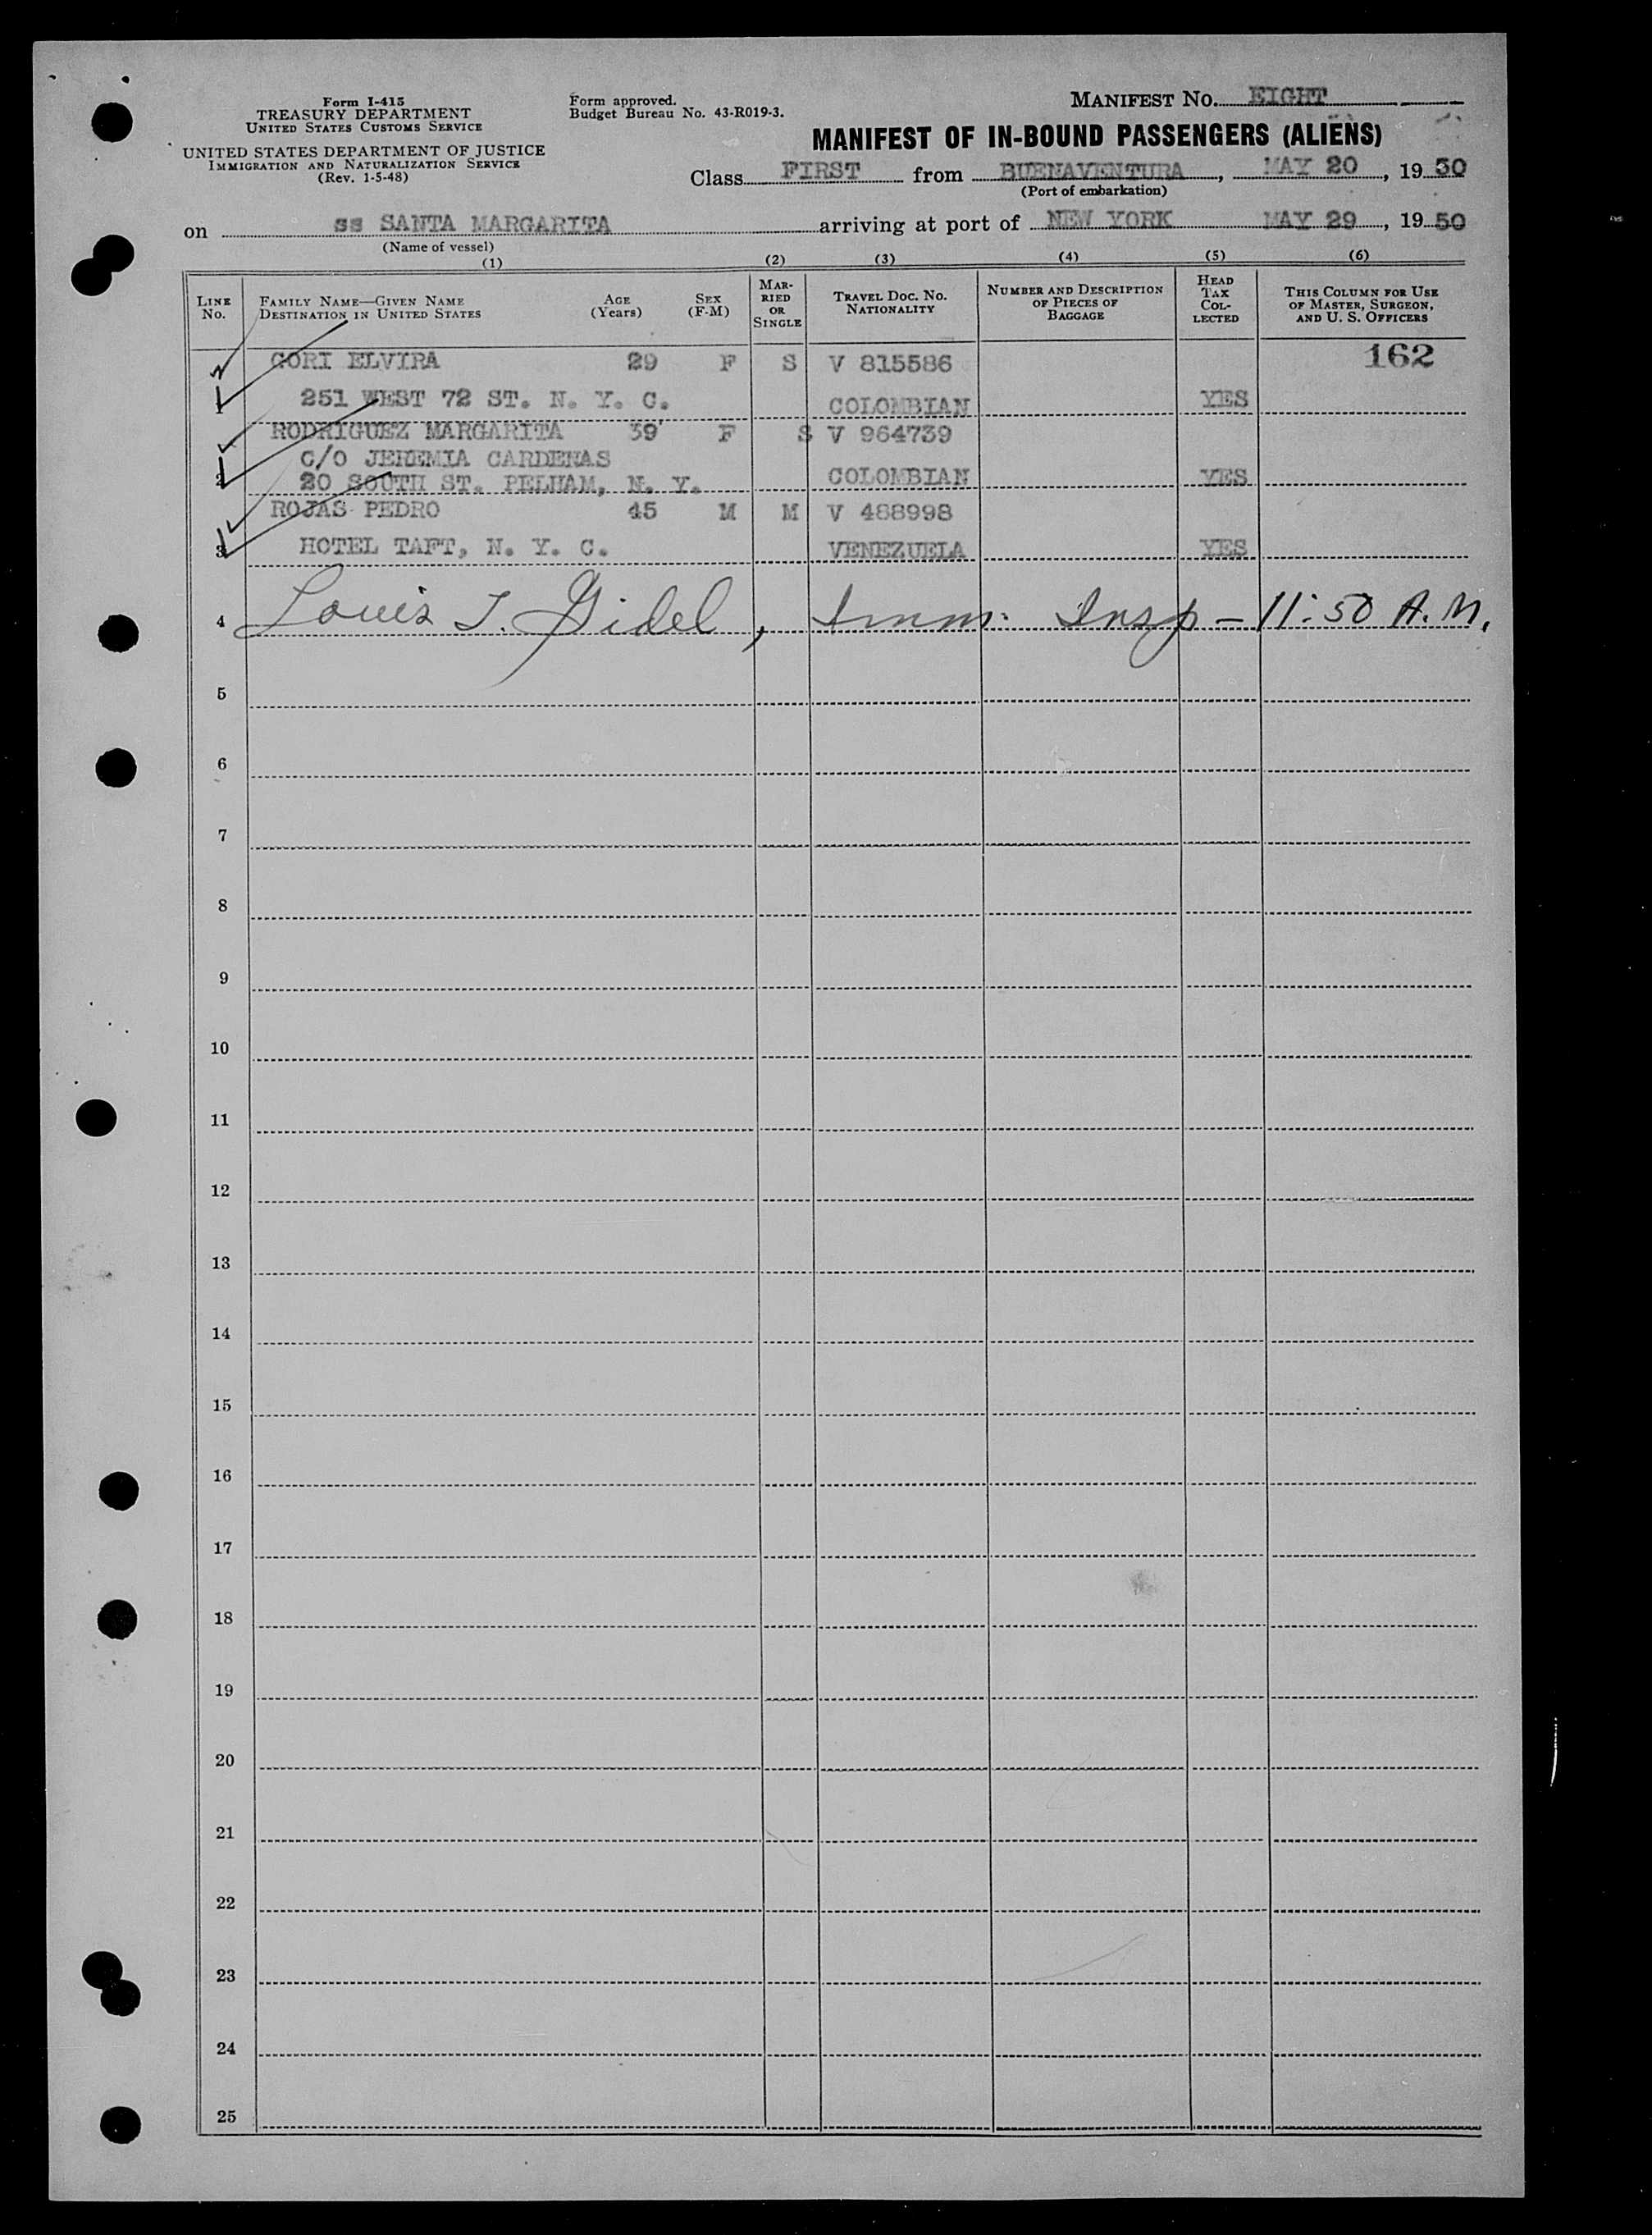 Form I-415
TREASURY DEPARTMENT
UNITED STATES CUSTOMS SERVICE
UNITED STATES DEPARTMENT OF JUSTICE
IMMIGRATION AND NATURALIZATION SERVICE
(Rev. 1-5-48)
Form approved.
Budget Bureau No. 43-R019-3.
MANIFEST NO. EIGHT
MANIFEST OF IN-BOUND PASSENGERS (ALIENS)
Class FIRST from BUENAVENTURA, MAY 20, 19 50
(Port of embarkation)
on ss SANTA MARGARITA arriving at port of NEW YORK MAY 29, 19 50
(Name of vessel)
(1) (2) (3) (4) (5) (6)
LINE NO.
FAMILY NAME—GIVEN NAME
DESTINATION IN UNITED STATES
AGE (Years)
SEX (F-M)
MARRIED OR SINGLE
TRAVEL DOC. NO. NATIONALITY
NUMBER AND DESCRIPTION OF PIECES OF BAGGAGE
HEAD TAX COLLECTED
THIS COLUMN FOR USE OF MASTER, SURGEON, AND U. S. OFFICERS
162
GORI ELVIRA 29 F S V 815586
1 251 WEST 72 ST. N. Y. C. COLOMBIAN YES
RODRIGUEZ MARGARITA 39 F S V 964739
C/O JEREMIA CARDENAS
2 20 SOUTH ST. PELHAM, N. Y. COLOMBIAN YES
ROJAS PEDRO 45 M M V 488998
3 HOTEL TAFT, N. Y. C. VENEZUELA YES
4 Louis J. Gidel, Imm. Insp - 11:50 A.M.
5
6
7
8
9
10
11
12
13
14
15
16
17
18
19
20
21
22
23
24
25